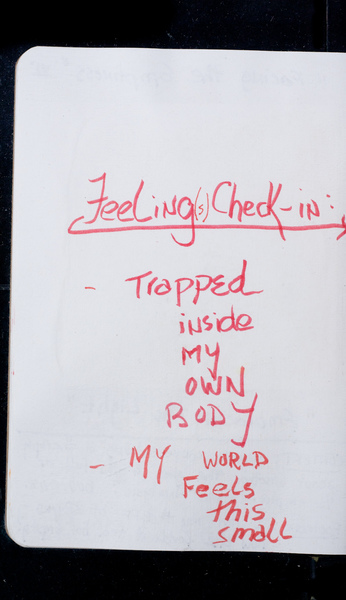 Feeling(s) Check-in:
- Trapped
inside
My
OWN
BODY
- MY WORLD
Feels
this
small